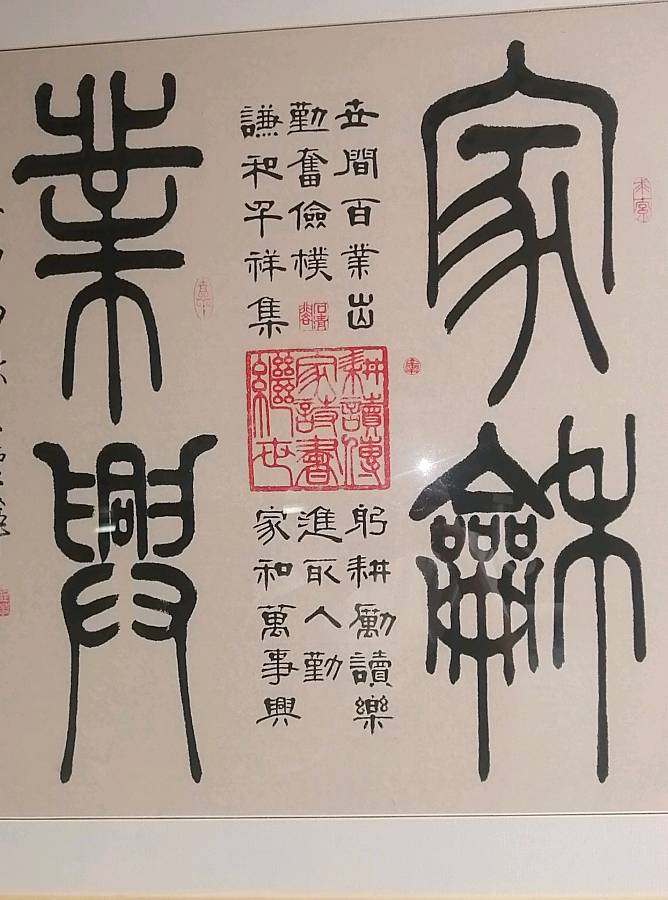 家龢
世間百業出
勤奮儉樸
謙和祥集
耕讀傳
家詩書
繼世
躬耕勵讀樂
進取人勤
家和萬事興
業興